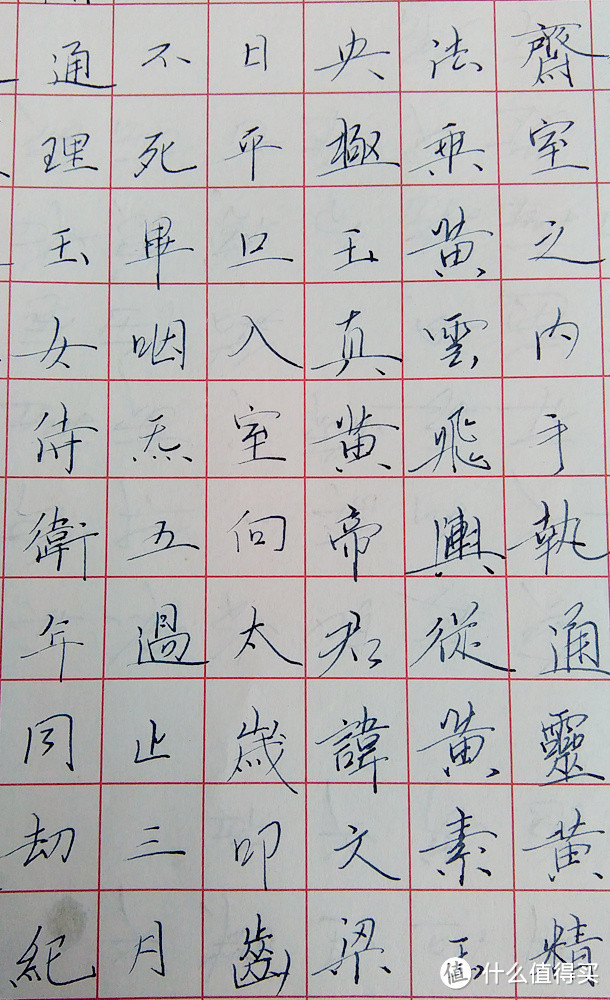 齋室之内手執通靈黄精
法乘黄雲飛輿從黄素玉
央極玉真黄帝君諱文梁
日平旦入室向太歲叩齒
不死畢咽炁五過止三月
通理玉女侍衛年同劫紀
值 什么值得买